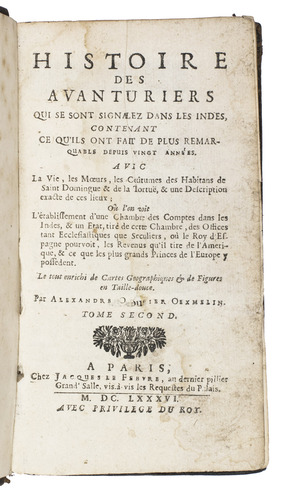 HISTOIRE
DES
AVANTURIERS
QUI SE SONT SIGNALEZ DANS LES INDES,
CONTENANT
CE QU'ILS ONT FAIT DE PLUS REMAR-
QUABLE DEPUIS VINGT ANNÉES.
AVEC
La Vie, les Mœurs, les Coûtumes des Habitans de
Saint Domingue & de la Tortuë, & une Description
exacte de ces lieux;
Où l'on voit
L'établissement d'une Chambre des Comptes dans les
Indes, & un Etat, tiré de cette Chambre, des Offices
tant Ecclesiastiques que Seculiers, où le Roy d'Es-
pagne pourvoit, les Revenus qu'il tire de l'Ameri-
que, & ce que les plus grands Princes de l'Europe y
possedent.
Le tout enrichi de Cartes Geographiques & de Figures
en Taille-douce.
Par ALEXANDRE OLIVIER OEXMELIN.
TOME SECOND.
A PARIS,
Chez JACQUES LE FEBVRE, au dernier pillier
Grand' Salle, vis-à-vis les Requestes du Palais.
M. DC. LXXXVI.
AVEC PRIVILEGE DU ROY.